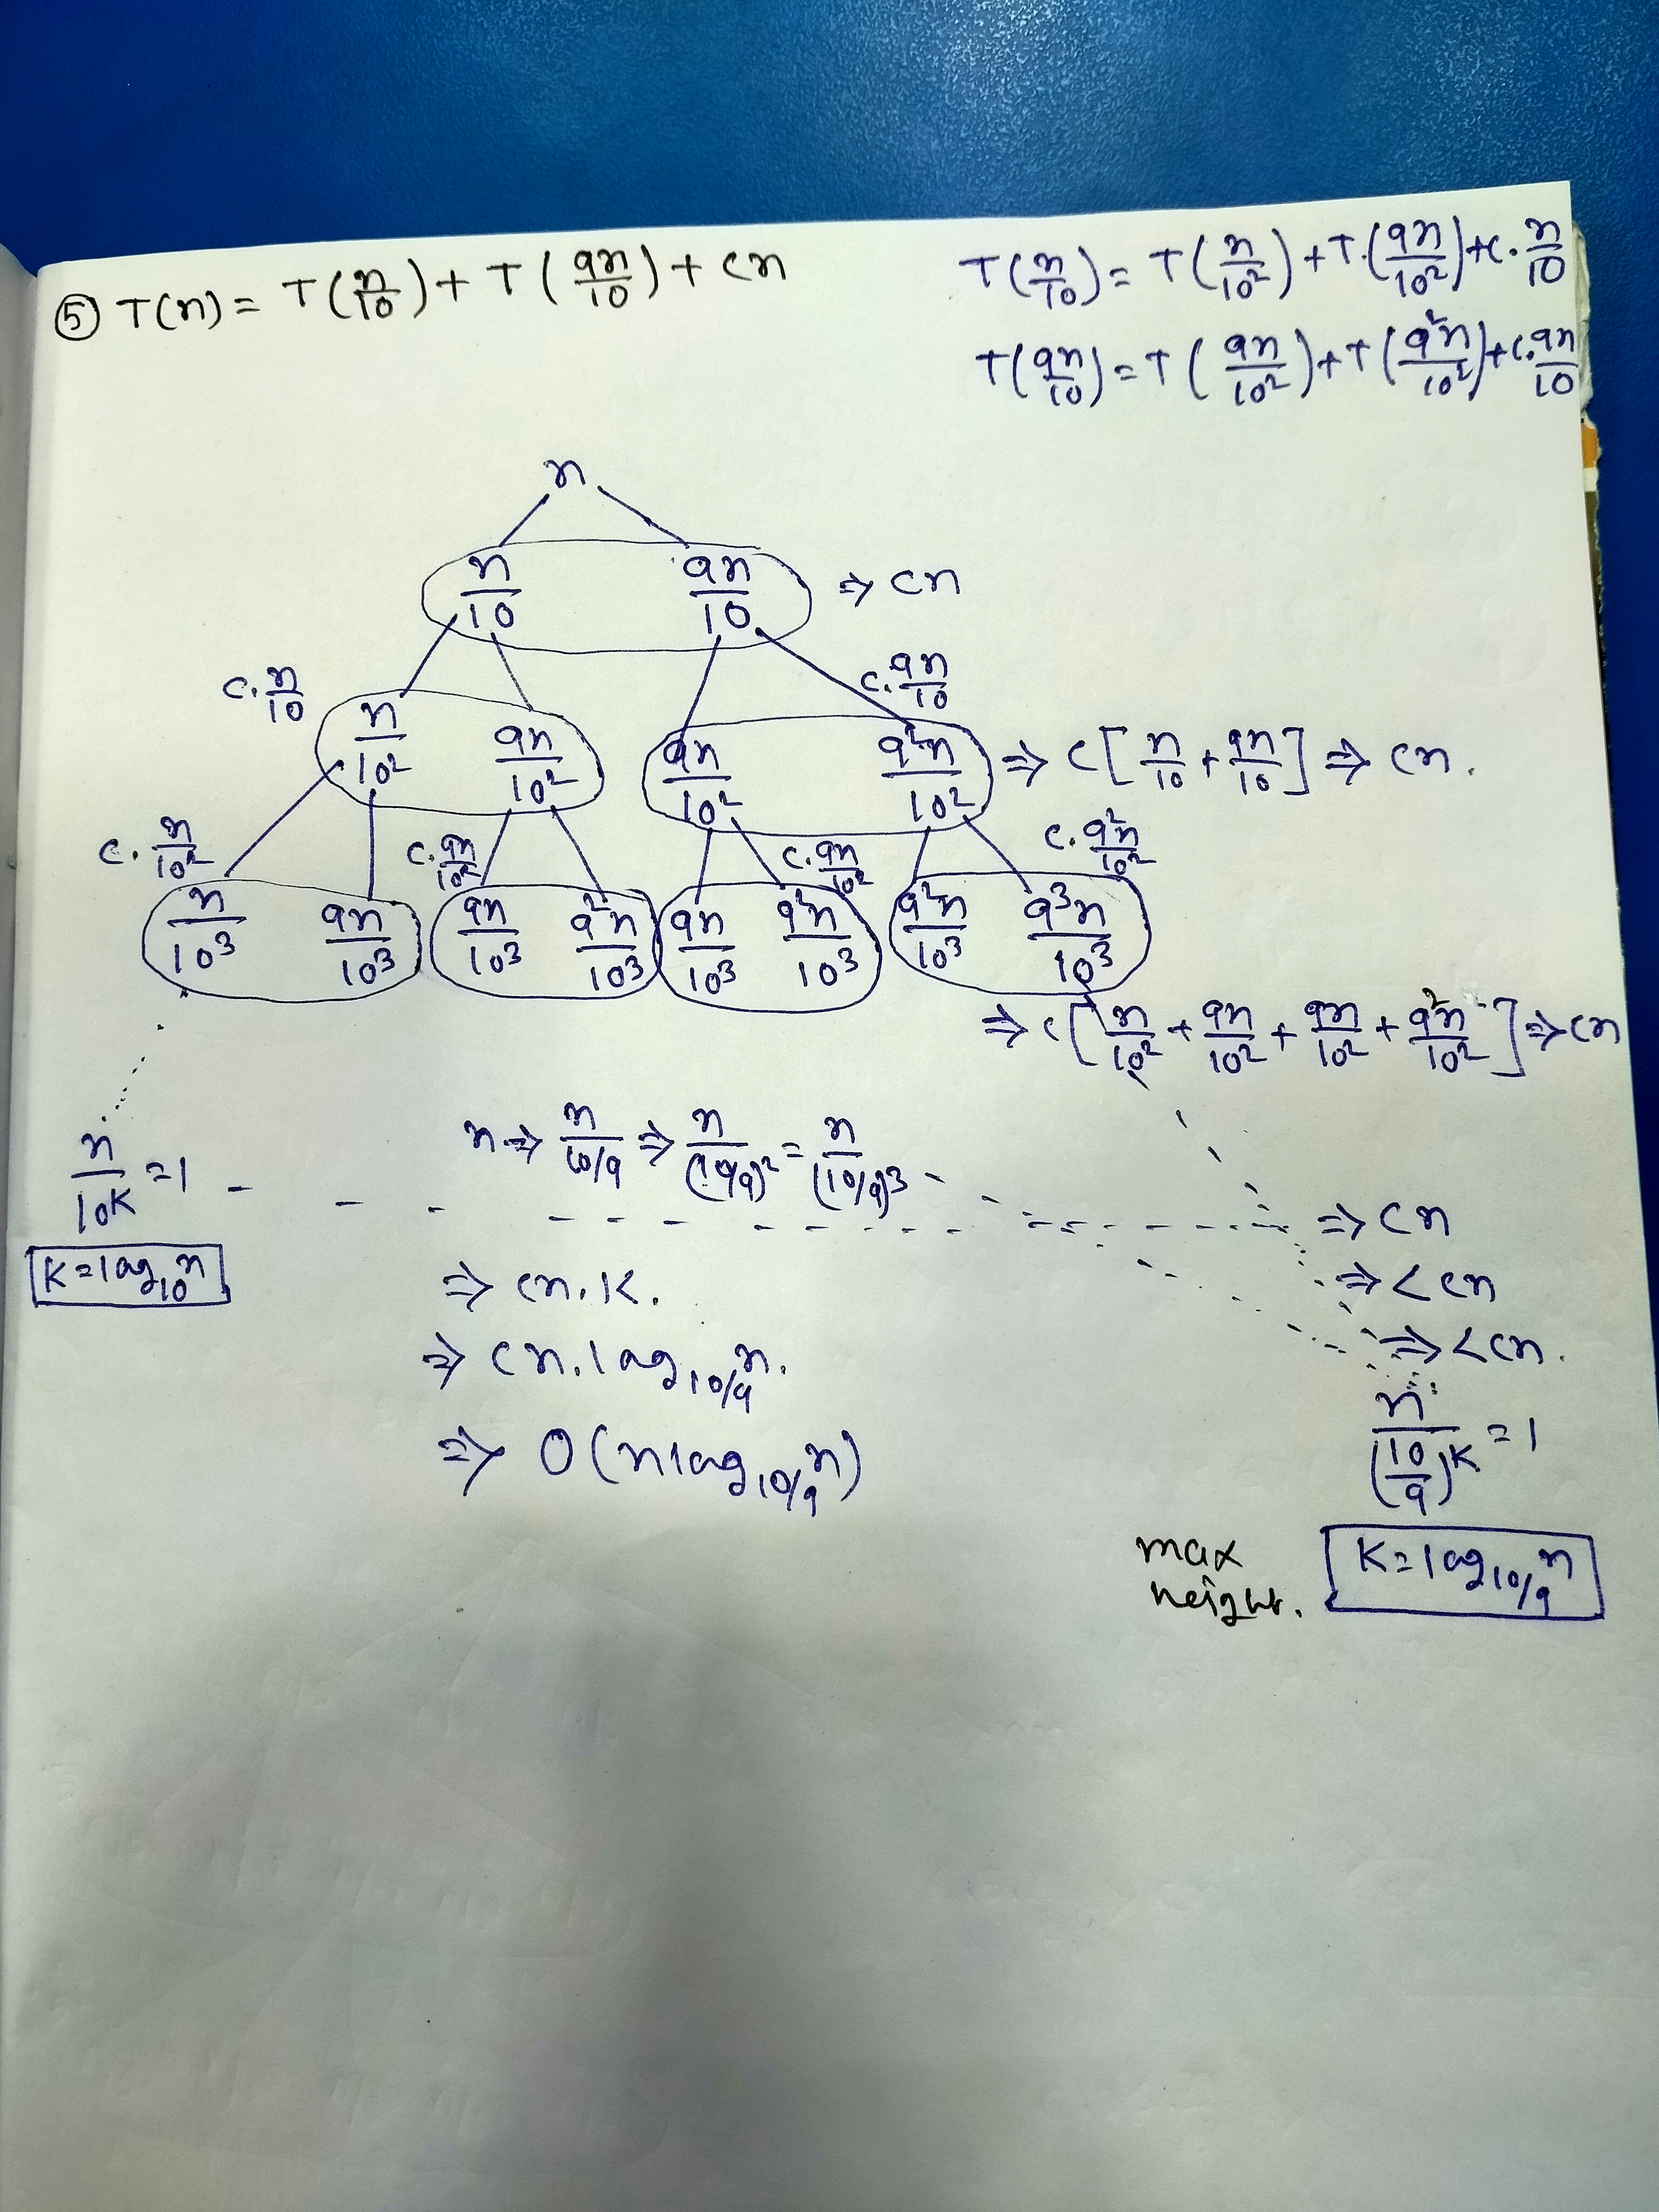 ⑤ T(n) = T(n/10) + T(9n/10) + cn
T(n/10) = T(n/10²) + T.(9n/10²) + c.n/10
T(9n/10) = T(9n/10²) + T(9²n/10²) + c.9n/10
n
n/10 9n/10 ⇒ cn
c.n/10 c.9n/10
n/10² 9n/10² 9n/10² 9²n/10² ⇒ c[n/10 + 9n/10] ⇒ cn.
c.n/10² c.9n/10² c.9n/10² c.9²n/10²
n/10³ 9n/10³ 9n/10³ 9²n/10³ 9n/10³ 9²n/10³ 9²n/10³ 9³n/10³
⇒ c[n/10² + 9n/10² + 9n/10² + 9²n/10²] ⇒ cn
n ⇒ n/10/9 ⇒ n/(10/9)² = n/(10/9)³
n/10ᴷ = 1 ⇒ cn
K = log₁₀n
⇒ cn.K. ⇒ < cn
⇒ cn.log₁₀/₉n. ⇒ < cn.
⇒ O(nlog₁₀/₉n) n/(10/9)ᴷ = 1
max height. K = log₁₀/₉n